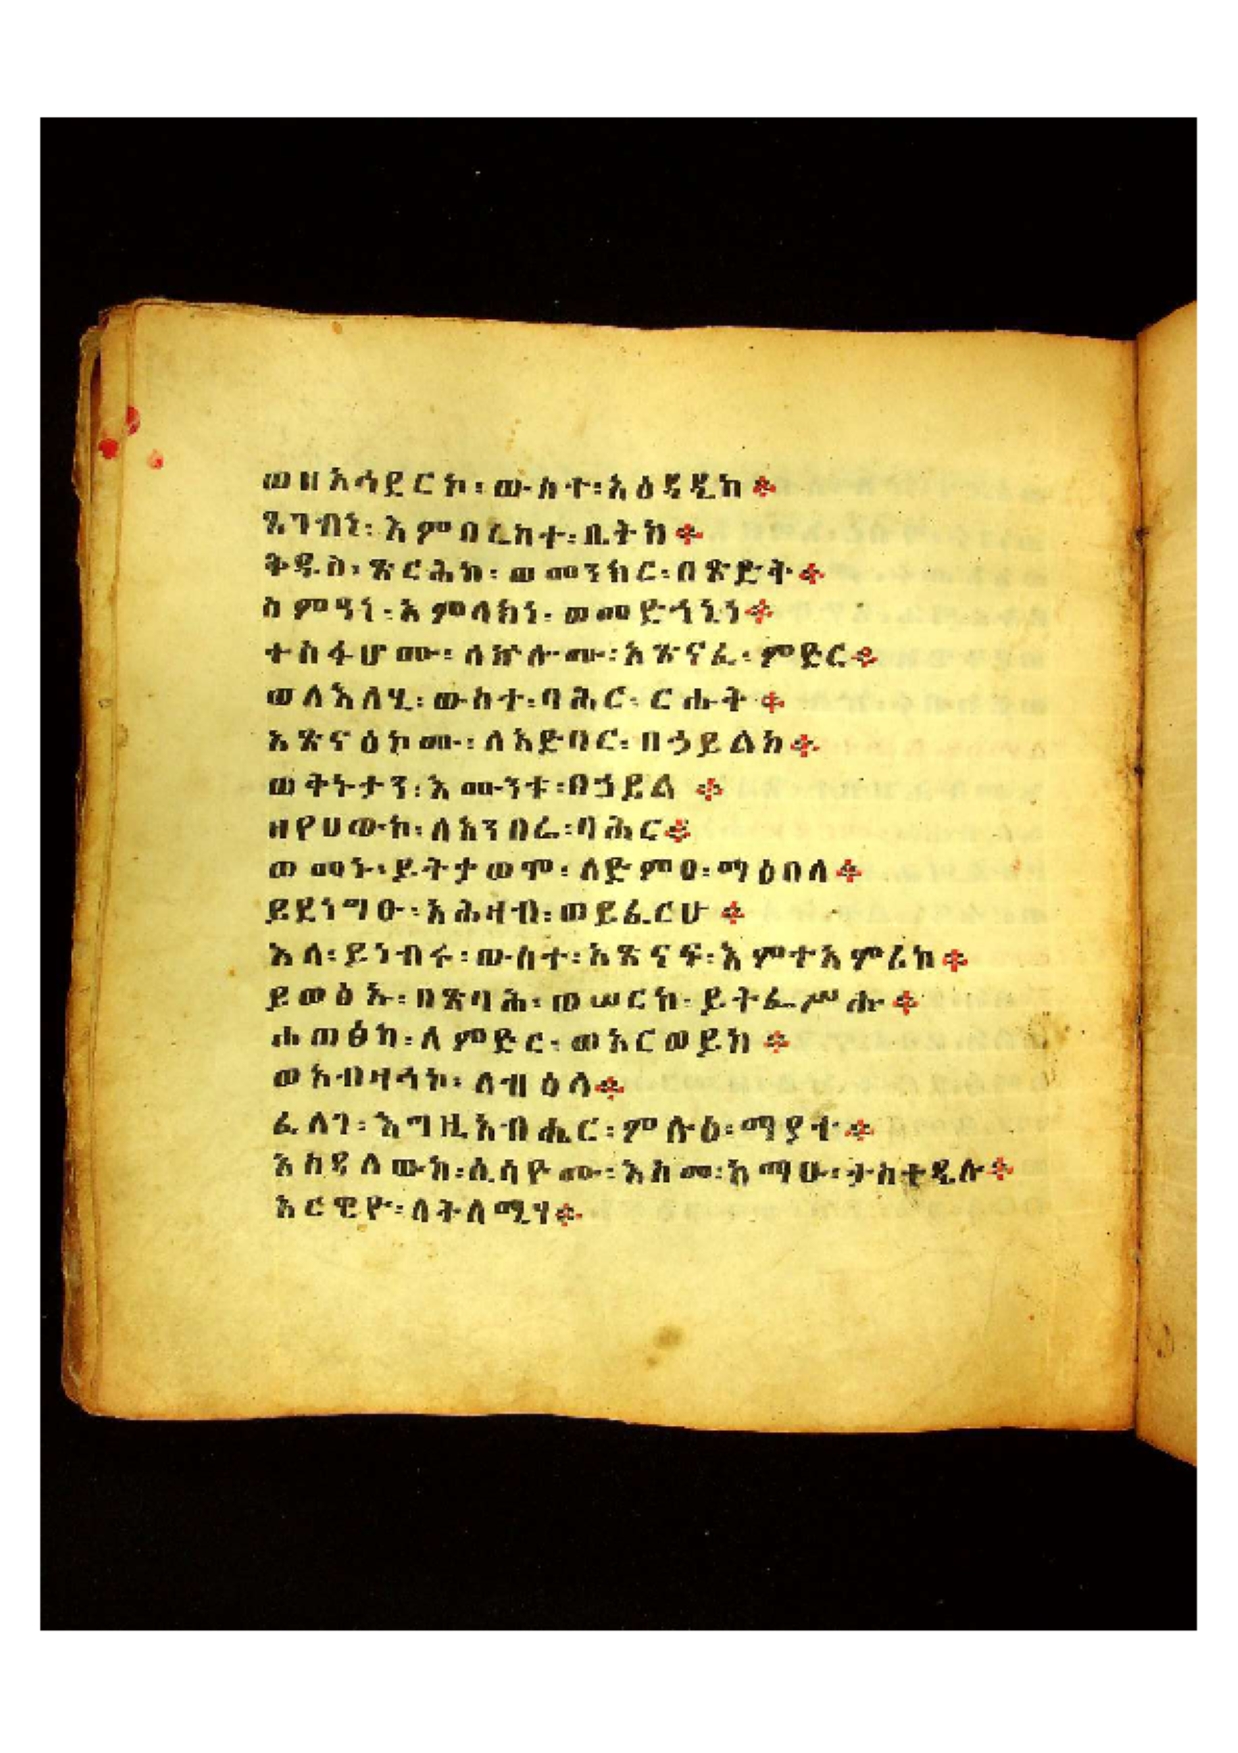 ወዘአኅደርኮ፡ውስተ፡አዕዳዲከ፨
ጸገብነ፡እምበረከተ፡ቤትከ፨
ቅዱስ፡ጽርሕከ፡ወመንክር፡በጽድቅ፨
ስምዓነ፡አምላክነ፡ወመድኅኒነ፨
ተስፋሆሙ፡ለኵሎሙ፡አጽናፈ፡ምድር፨
ወለእለሂ፡ውስተ፡ባሕር፡ርሑቅ፨
አጽናዕኮሙ፡ለአድባር፡በኃይልከ፨
ወቅኑታን፡እሙንቱ፡በኃይል፨
ዘየሀውኮ፡ለአንበሬ፡ባሕር፨
ወመኑ፡ይትቃወሞ፡ለድምፀ፡ማዕበለ፨
ይደነግፁ፡አሕዛብ፡ወይፈርሁ፨
እለ፡ይነብሩ፡ውስተ፡አጽናፍ፡እምተአምሪከ፨
ይወፅኡ፡በጽባሕ፡ወሠርከ፡ይትፌሥሑ፨
ሐወፅካ፡ለምድር፡ወአርወይካ፨
ወአብዛኅኮ፡ለብዕላ፨
ፈለገ፡እግዚአብሔር፡ምሉዕ፡ማያተ፨
አስዳለውከ፡ሲሳዮሙ፡እስመ፡ከማሁ፡ታስተዴሉ፨
አርዊዮ፡ለትለሚሃ፨